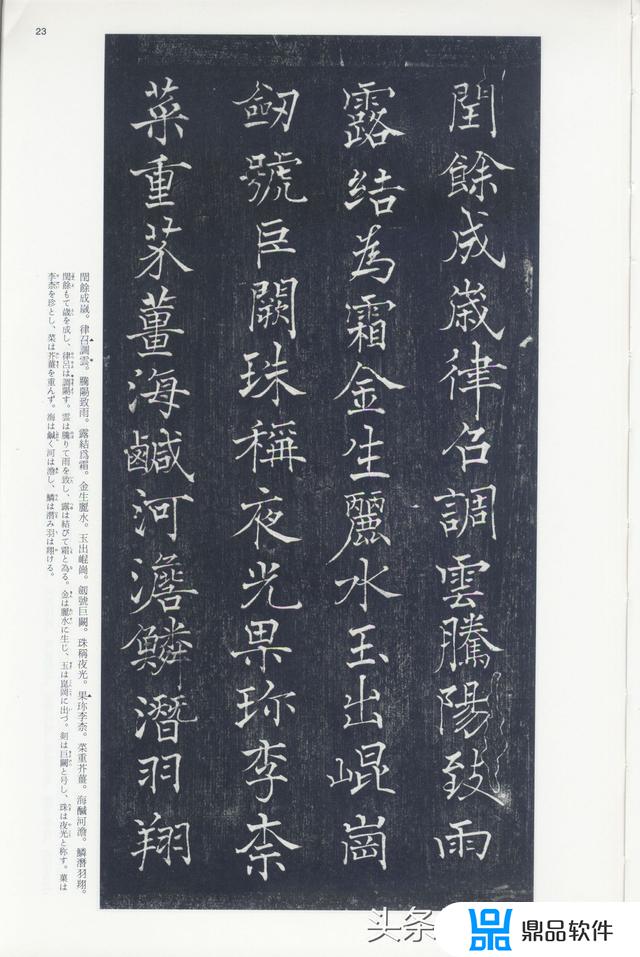 23
閏餘成歲律召調雲騰陽致雨
露結為霜金生麗水玉出崐崗
劔號巨闕珠稱夜光果珎李柰
菜重芥薑海鹹河澹鱗潛羽翔
閏餘成歲。律召調雲。騰陽致雨。露結爲霜。金生麗水。玉出崐崗。劔號巨闕。珠稱夜光。果珎李柰。菜重芥薑。海醎河澹。鱗潛羽翔。
閏餘もて歲を成し、律呂は調陽す。雲は騰りて雨を致し、露は結びて霜と為る。金は麗水に生じ、玉は崑岡に出づ。剣は巨闕と号し、珠は夜光と称す。菓は
李柰を珍とし、菜は芥薑を重んず。海は鹹く河は澹し、鱗は潛み羽は翔ける。
头条
鼎品软件